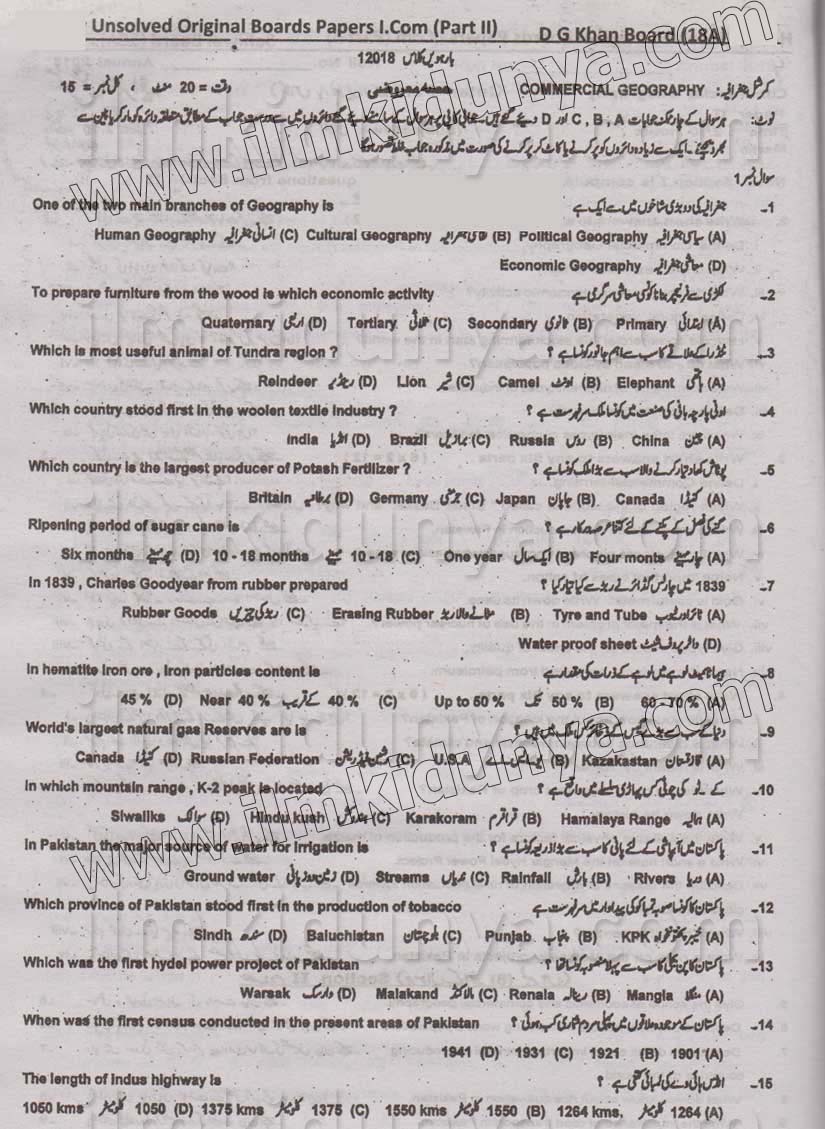 Unsolved Original Boards Papers I.Com (Part II) D G Khan Board (18A)
بارہویں کلاس 12018
کمرشل جغرافیہ: COMMERCIAL GEOGRAPHY حصہ معروضی وقت = 20 منٹ ، کل نمبر = 15
نوٹ: ہر سوال کے چار ممکنہ جوابات C , B , A اور D دیے گئے ہیں۔ جوابی کاپی پر ہر سوال کے سامنے دیے گئے دائروں میں سے درست جواب کے مطابق متعلقہ دائرہ کو مارکر یا پین سے
بھر دیجئے۔ ایک سے زیادہ دائروں کو پر کرنے یا کاٹ کر پر کرنے کی صورت میں مذکورہ جواب غلط تصور ہوگا
سوال نمبر 1
1- جغرافیہ کی دو بڑی شاخوں میں سے ایک ہے One of the two main branches of Geography is
(A) سیاسی جغرافیہ Political Geography (B) ثقافتی جغرافیہ Cultural Geography (C) انسانی جغرافیہ Human Geography
(D) معاشی جغرافیہ Economic Geography
2- لکڑی سے فرنیچر بنانا کونسی معاشی سرگرمی ہے To prepare furniture from the wood is which economic activity
(A) ابتدائی Primary (B) ثانوی Secondary (C) ثلاثی Tertiary (D) اربعی Quaternary
3- ٹنڈرا کے علاقے کا سب سے اہم جانور کونسا ہے ؟ Which is most useful animal of Tundra region ?
(A) ہاتھی Elephant (B) اونٹ Camel (C) شیر Lion (D) رینڈیر Reindeer
4- اونی پارچہ بافی کی صنعت میں کونسا ملک سرفہرست ہے ؟ Which country stood first in the woolen textile industry ?
(A) چین China (B) روس Russia (C) برازیل Brazil (D) انڈیا India
5- پوٹاش کھاد تیار کرنے والا سب سے بڑا ملک کونسا ہے ؟ Which country is the largest producer of Potash Fertilizer ?
(A) کینیڈا Canada (B) جاپان Japan (C) جرمنی Germany (D) برطانیہ Britain
6- گنے کی فصل کے پکنے کے لئے کتنا عرصہ درکار ہے ؟ Ripening period of sugar cane is
(A) چار مہینے Four monts (B) ایک سال One year (C) 10 - 18 مہینے 10 - 18 months (D) چھ مہینے Six months
7- 1839 میں چارلس گڈائر نے ربڑ سے کیا تیار کیا ؟ In 1839 , Charles Goodyear from rubber prepared
(A) ٹائر اور ٹیوب Tyre and Tube (B) مٹانے والا ربڑ Erasing Rubber (C) ربڑ کی چیزیں Rubber Goods
(D) واٹر پروف شیٹ Water proof sheet
8- ہیماٹائیٹ لوہے میں لوہے کے ذرات کی مقدار ہے In hematite iron ore , Iron particles content is
(A) 60 - 70 % (B) 50 % تک Up to 50 % (C) 40 % کے قریب Near 40 % (D) 45 %
9- دنیا کے سب سے بڑے گیس کے ذخائر کس ملک میں ہیں ؟ World's largest natural gas Reserves are is
(A) قازقستان Kazakastan (B) یو ایس اے U.S.A (C) رشین فیڈریشن Russian Federation (D) کینیڈا Canada
10- کے ۔ ٹو کی چوٹی کس پہاڑی سلسلے میں واقع ہے ؟ In which mountain range , K-2 peak is located
(A) ہمالیہ Hamalaya Range (B) قراقرم Karakoram (C) ہندوکش Hindu kush (D) سوالک Siwaliks
11- پاکستان میں آبپاشی کے لئے پانی کا سب سے بڑا ذریعہ کونسا ہے ؟ In Pakistan the major source of water for Irrigation is
(A) دریا Rivers (B) بارش Rainfall (C) ندیاں Streams (D) زمین دوز پانی Ground water
12- پاکستان کا کونسا صوبہ تمباکو کی پیداوار میں سرفہرست ہے Which province of Pakistan stood first in the production of tobacco
(A) خیبر پختونخواہ KPK (B) پنجاب Punjab (C) بلوچستان Baluchistan (D) سندھ Sindh
13- پاکستان کا پن بجلی کا سب سے پہلا منصوبہ کونسا تھا ؟ Which was the first hydel power project of Pakistan
(A) منگلا Mangla (B) رینالہ Renala (C) مالاکنڈ Malakand (D) وارسک Warsak
14- پاکستان کے موجودہ علاقوں میں پہلی مردم شماری کب ہوئی ؟ When was the first census conducted in the present areas of Pakistan
(A) 1901 (B) 1921 (C) 1931 (D) 1941
15- انڈس ہائی وے کی لمبائی کتنی ہے ؟ The length of Indus highway is
(A) 1264 کلومیٹر 1264 kms, (B) 1550 کلومیٹر 1550 kms (C) 1375 کلومیٹر 1375 kms (D) 1050 کلومیٹر 1050 kms
www.ilmkidunya.com
www.ilmkidunya.com
ilmkidunya.com
ilmkidunya.com
ilmkidunya.com
ilmkidunya.com